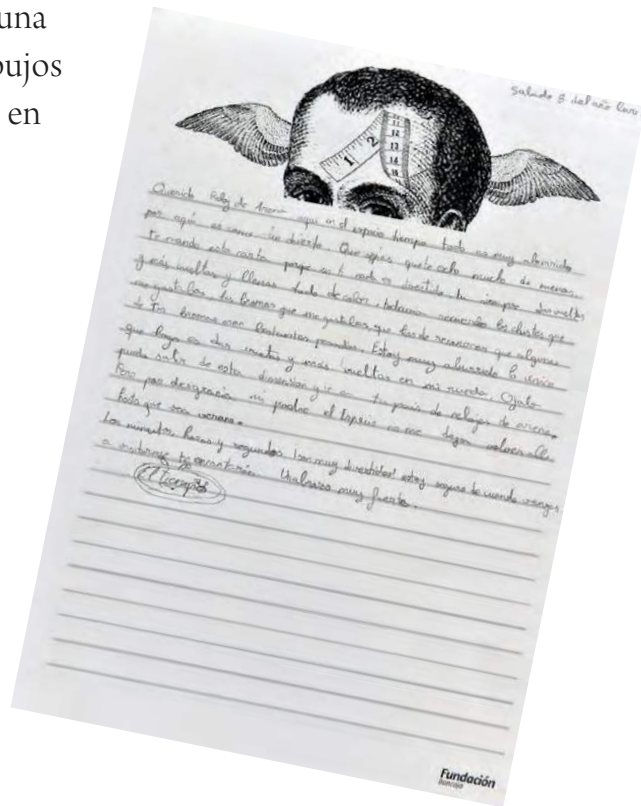 una
bujos
en
Sabado 8 del año Cero
11
12
13
14
15
1 2
Querido Reloj de Arena aqui en el espacio tiempo todo es muy aburrido
por aquí es como un divertí. Que sepas que te echo mucho de menos
te mando esta carta porque es divertido tu siempre das vueltas
y más vueltas y llenas todo de color todavía recuerdo los chistes que
me gustaban las bromas que me gustaban que has de reconocer que algunas
de tus bromas eran bastantes pesadas. Estoy muy aburrido lo único
que hago es dar vueltas y más vueltas en mi mundo. Ojala
pueda salir de esta dimension y ir a tu pais de relojes de arena.
Pero por desgracia mi padre el Espacio no me dejan volver allí
hasta que sea verano.
Los minutos, horas y segundos ¡son muy divertidos! estoy seguro de cuando vengas
a visitarme te encantarán. Un abrazo muy fuerte.
El tiempo
Fundación
Bancaja